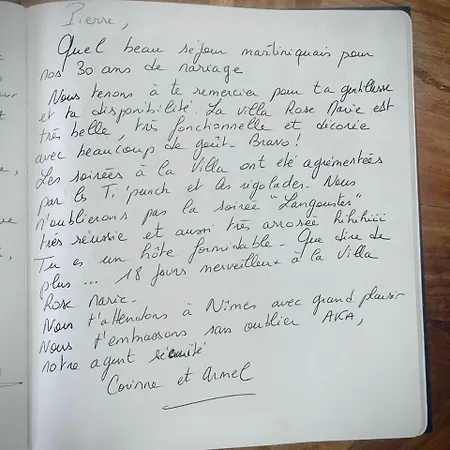 Pierre,
Quel beau séjour martiniquais pour
nos 30 ans de mariage
Nous tenons à te remercier pour ta gentillesse
et ta disponibilité. La villa Rose Marie est
très belle, très fonctionnelle et décorée
avec beaucoup de goût. Bravo!
Les soirées à la Villa ont été agrémentées
par les Ti punch et les rigolades. Nous
n'oublierons pas la soirée "Langoustes"
très réussie et aussi très arrosée hihihiii
Tu es un hôte formidable. Que dire de
plus... 18 jours merveilleux à la Villa
Rose Marie.
Nous t'attendons à Nîmes avec grand plaisir
Nous t'embrassons sans oublier AKA,
notre agent sécurité
Corinne et Armel